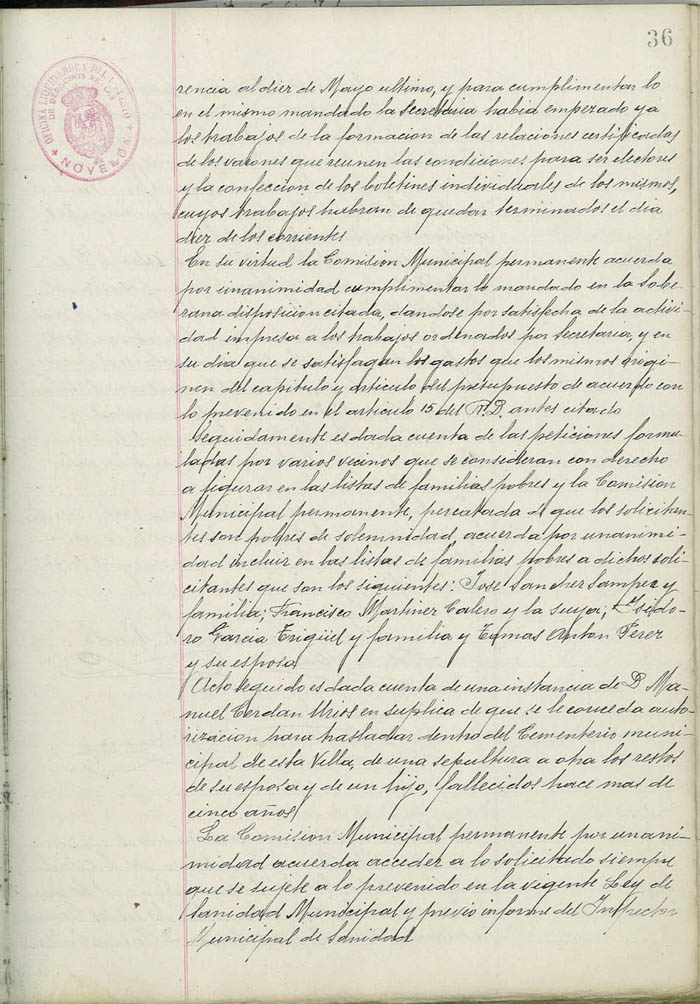 36
OFICINA LIQUIDADORA DEL IMPUESTO
DE DERECHOS REALES
NOVELDA
rencia al diez de Mayo ultimo, y para cumplimentar lo
en el mismo mandado la Secretaria habia empezado ya
los trabajos de la formacion de las relaciones certificadas
de los varones que reunen las condiciones para ser electores
y la confeccion de los boletines individuales de los mismos,
cuyos trabajos habran de quedar terminados el dia
diez de los corrientes
En su virtud la Comision Municipal permanente acuerda
por unanimidad cumplimentar lo mandado en la Sobe-
rana disposicion citada, dandose por satisfecha de la activi-
dad impresa a los trabajos ordenados por Secretaria, y en
su dia que se satisfagan los gastos que los mismos origi-
nen del capitulo y articulo del presupuesto de acuerdo con
lo prevenido en el articulo 15 del R.D. antes citado
Seguidamente es dada cuenta de las peticiones formu-
ladas por varios vecinos que se consideran con derecho
a figurar en las listas de familias pobres y la Comision
Municipal permanente, percatada de que los solicitan-
tes son pobres de solemnidad, acuerda por unanimi-
dad incluir en las listas de familias pobres a dichos soli-
citantes que son los siguientes: José Sanchez Samper y
familia; Francisco Martinez Calero y la suya; Ysido-
ro Garcia y familia y Tomas Anton Perez
y su esposa
Acto seguido es dada cuenta de una instancia de D. Ma-
nuel Cerdan Urios en suplica de que se le conceda auto-
rizacion para trasladar dentro del Cementerio muni-
cipal de esta Villa, de una sepultura a otra los restos
de su esposa y de un hijo, fallecidos hace mas de
cinco años
La Comision Municipal permanente por unani-
midad acuerda acceder a lo solicitado siempre
que se sujete a lo prevenido en la vigente Ley de
Sanidad Municipal y previo informe del Inspector
Municipal de Sanidad